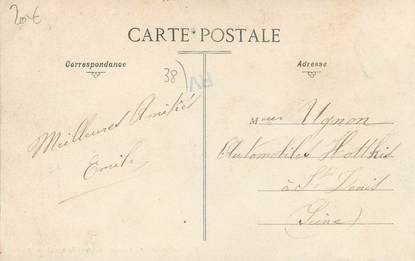 20€
CARTE POSTALE
Correspondance
Adresse
38)
RV
Meilleures Amitiés
Emile
Mieur Ugnon
Automobiles Hotchkis
à St Denis
(Seine)